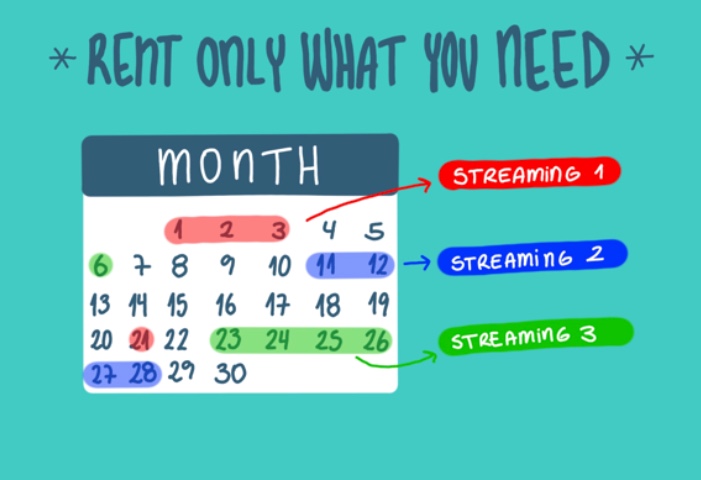 * RENT ONLY WHAT YOU NEED *
MONTH
1 2 3 4 5
6 7 8 9 10 11 12
13 14 15 16 17 18 19
20 21 22 23 24 25 26
27 28 29 30
STREAMING 1
STREAMING 2
STREAMING 3